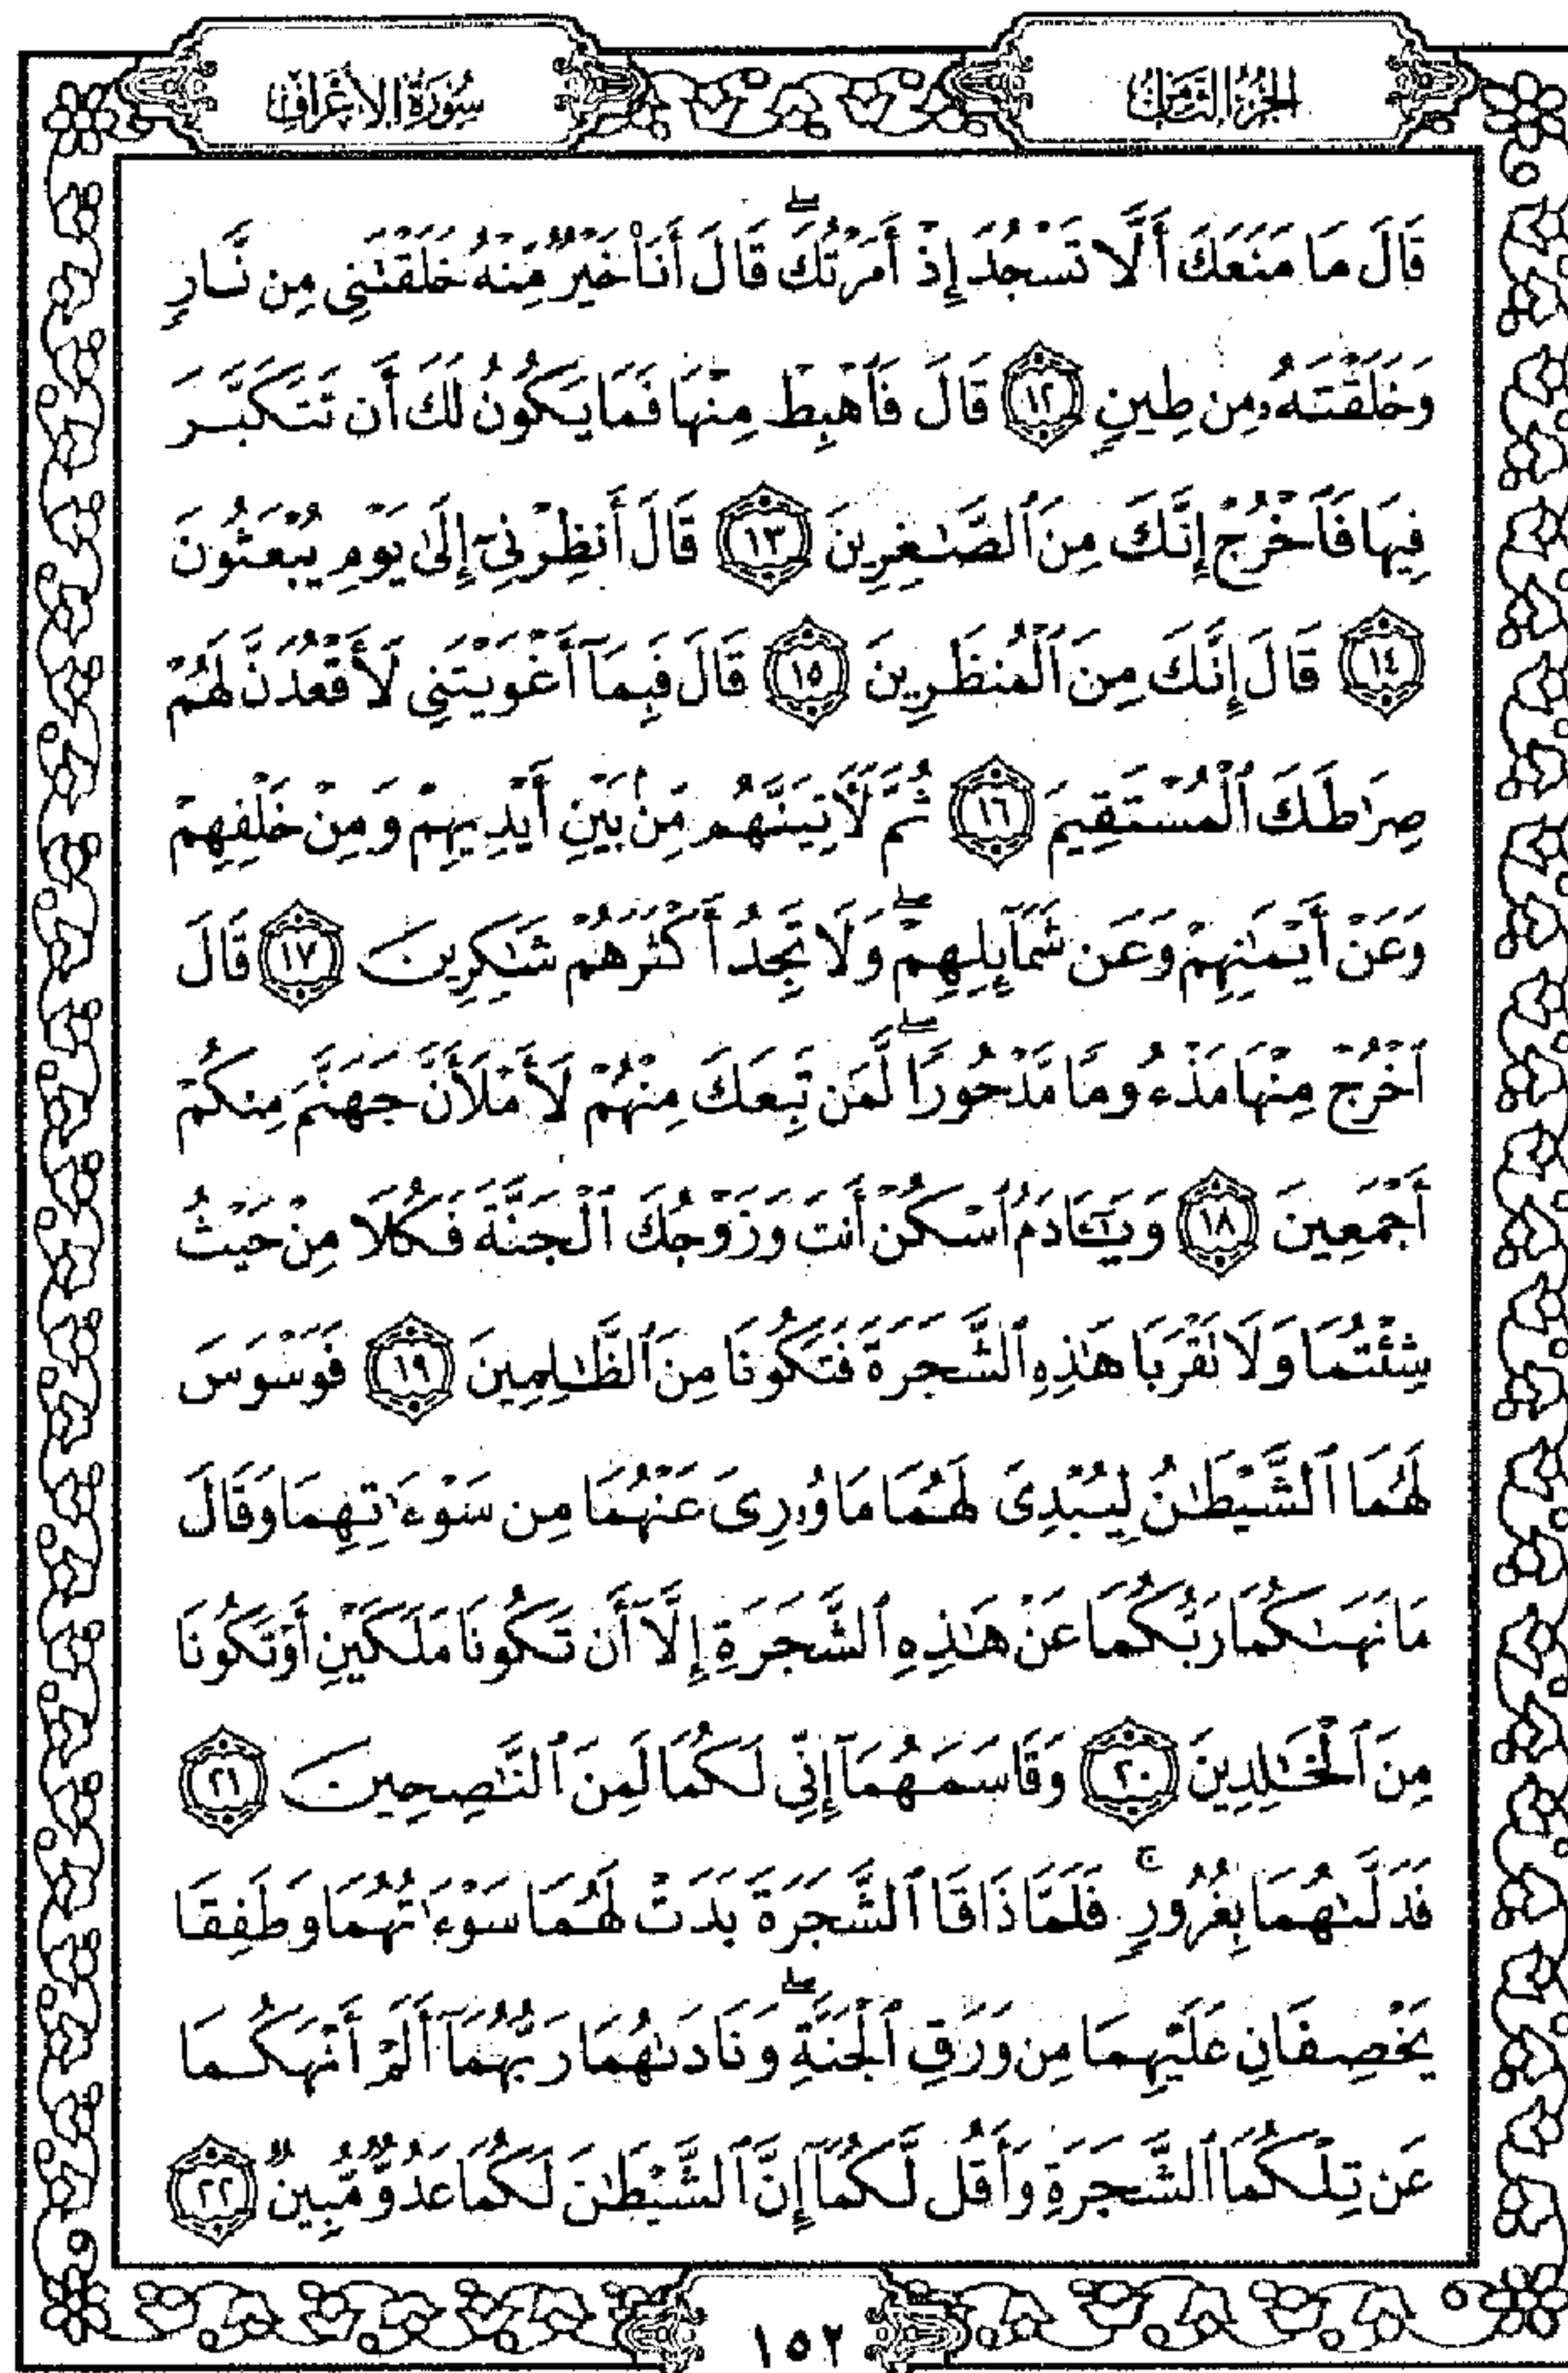 سُورَةُ الأَعْرَافِ
الجُزْءُ الثَّامِنُ
قَالَ مَا مَنَعَكَ أَلَّا تَسْجُدَ إِذْ أَمَرْتُكَ ۖ قَالَ أَنَا۠ خَيْرٌ مِّنْهُ خَلَقْتَنِى مِن نَّارٍ
وَخَلَقْتَهُۥ مِن طِينٍ ١٢ قَالَ فَٱهْبِطْ مِنْهَا فَمَا يَكُونُ لَكَ أَن تَتَكَبَّرَ
فِيهَا فَٱخْرُجْ إِنَّكَ مِنَ ٱلصَّـٰغِرِينَ ١٣ قَالَ أَنظِرْنِىٓ إِلَىٰ يَوْمِ يُبْعَثُونَ
١٤ قَالَ إِنَّكَ مِنَ ٱلْمُنظَرِينَ ١٥ قَالَ فَبِمَآ أَغْوَيْتَنِى لَأَقْعُدَنَّ لَهُمْ
صِرَٰطَكَ ٱلْمُسْتَقِيمَ ١٦ ثُمَّ لَـَٔاتِيَنَّهُم مِّنۢ بَيْنِ أَيْدِيهِمْ وَمِنْ خَلْفِهِمْ
وَعَنْ أَيْمَـٰنِهِمْ وَعَن شَمَآئِلِهِمْ ۖ وَلَا تَجِدُ أَكْثَرَهُمْ شَـٰكِرِينَ ١٧ قَالَ
ٱخْرُجْ مِنْهَا مَذْءُومًا مَّدْحُورًا ۖ لَّمَن تَبِعَكَ مِنْهُمْ لَأَمْلَأَنَّ جَهَنَّمَ مِنكُمْ
أَجْمَعِينَ ١٨ وَيَـٰٓـَٔادَمُ ٱسْكُنْ أَنتَ وَزَوْجُكَ ٱلْجَنَّةَ فَكُلَا مِنْ حَيْثُ
شِئْتُمَا وَلَا تَقْرَبَا هَـٰذِهِ ٱلشَّجَرَةَ فَتَكُونَا مِنَ ٱلظَّـٰلِمِينَ ١٩ فَوَسْوَسَ
لَهُمَا ٱلشَّيْطَـٰنُ لِيُبْدِىَ لَهُمَا مَا وُۥرِىَ عَنْهُمَا مِن سَوْءَٰتِهِمَا وَقَالَ
مَا نَهَىٰكُمَا رَبُّكُمَا عَنْ هَـٰذِهِ ٱلشَّجَرَةِ إِلَّآ أَن تَكُونَا مَلَكَيْنِ أَوْ تَكُونَا
مِنَ ٱلْخَـٰلِدِينَ ٢٠ وَقَاسَمَهُمَآ إِنِّى لَكُمَا لَمِنَ ٱلنَّـٰصِحِينَ ٢١
فَدَلَّىٰهُمَا بِغُرُورٍ ۚ فَلَمَّا ذَاقَا ٱلشَّجَرَةَ بَدَتْ لَهُمَا سَوْءَٰتُهُمَا وَطَفِقَا
يَخْصِفَانِ عَلَيْهِمَا مِن وَرَقِ ٱلْجَنَّةِ ۖ وَنَادَىٰهُمَا رَبُّهُمَآ أَلَمْ أَنْهَكُمَا
عَن تِلْكُمَا ٱلشَّجَرَةِ وَأَقُل لَّكُمَآ إِنَّ ٱلشَّيْطَـٰنَ لَكُمَا عَدُوٌّ مُّبِينٌ ٢٢
١٥٢